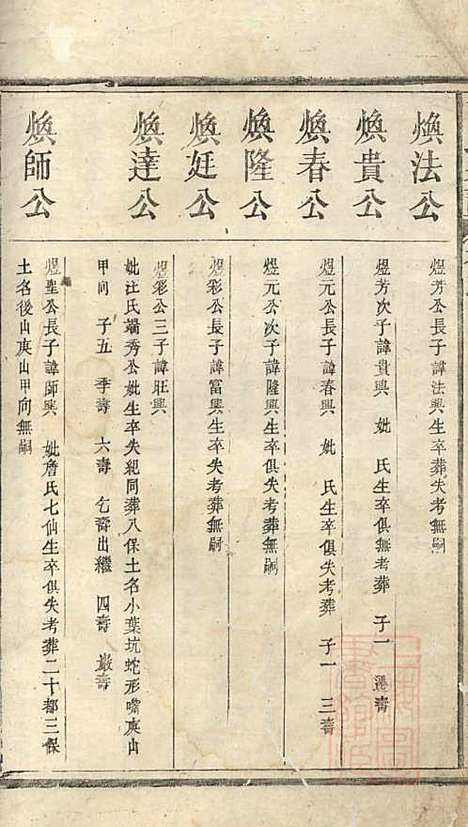 煥法公
煜芳公長子諱法興生卒葬失考無嗣
煥貴公
煜芳次子諱貴興 妣 氏生卒俱無考葬 子一 遷壽
煥春公
煜元公長子諱春興 妣 氏生卒俱失考葬 子一 三壽
煥隆公
煜元公次子諱隆興生卒俱失考葬無嗣
煥廷公
煜彩公長子諱富興生卒失考葬無嗣
煥達公
煜彩公三子諱旺興
妣汪氏端秀公妣生卒失紀同葬八保土名小葉坑蛇形嘴庚山
甲向 子五 季壽 六壽 乞壽出繼 四壽 嚴壽
煥師公
煜聖公長子諱師興 妣詹氏七仙生卒俱失考葬二十都三保
土名後山庚山甲向無嗣